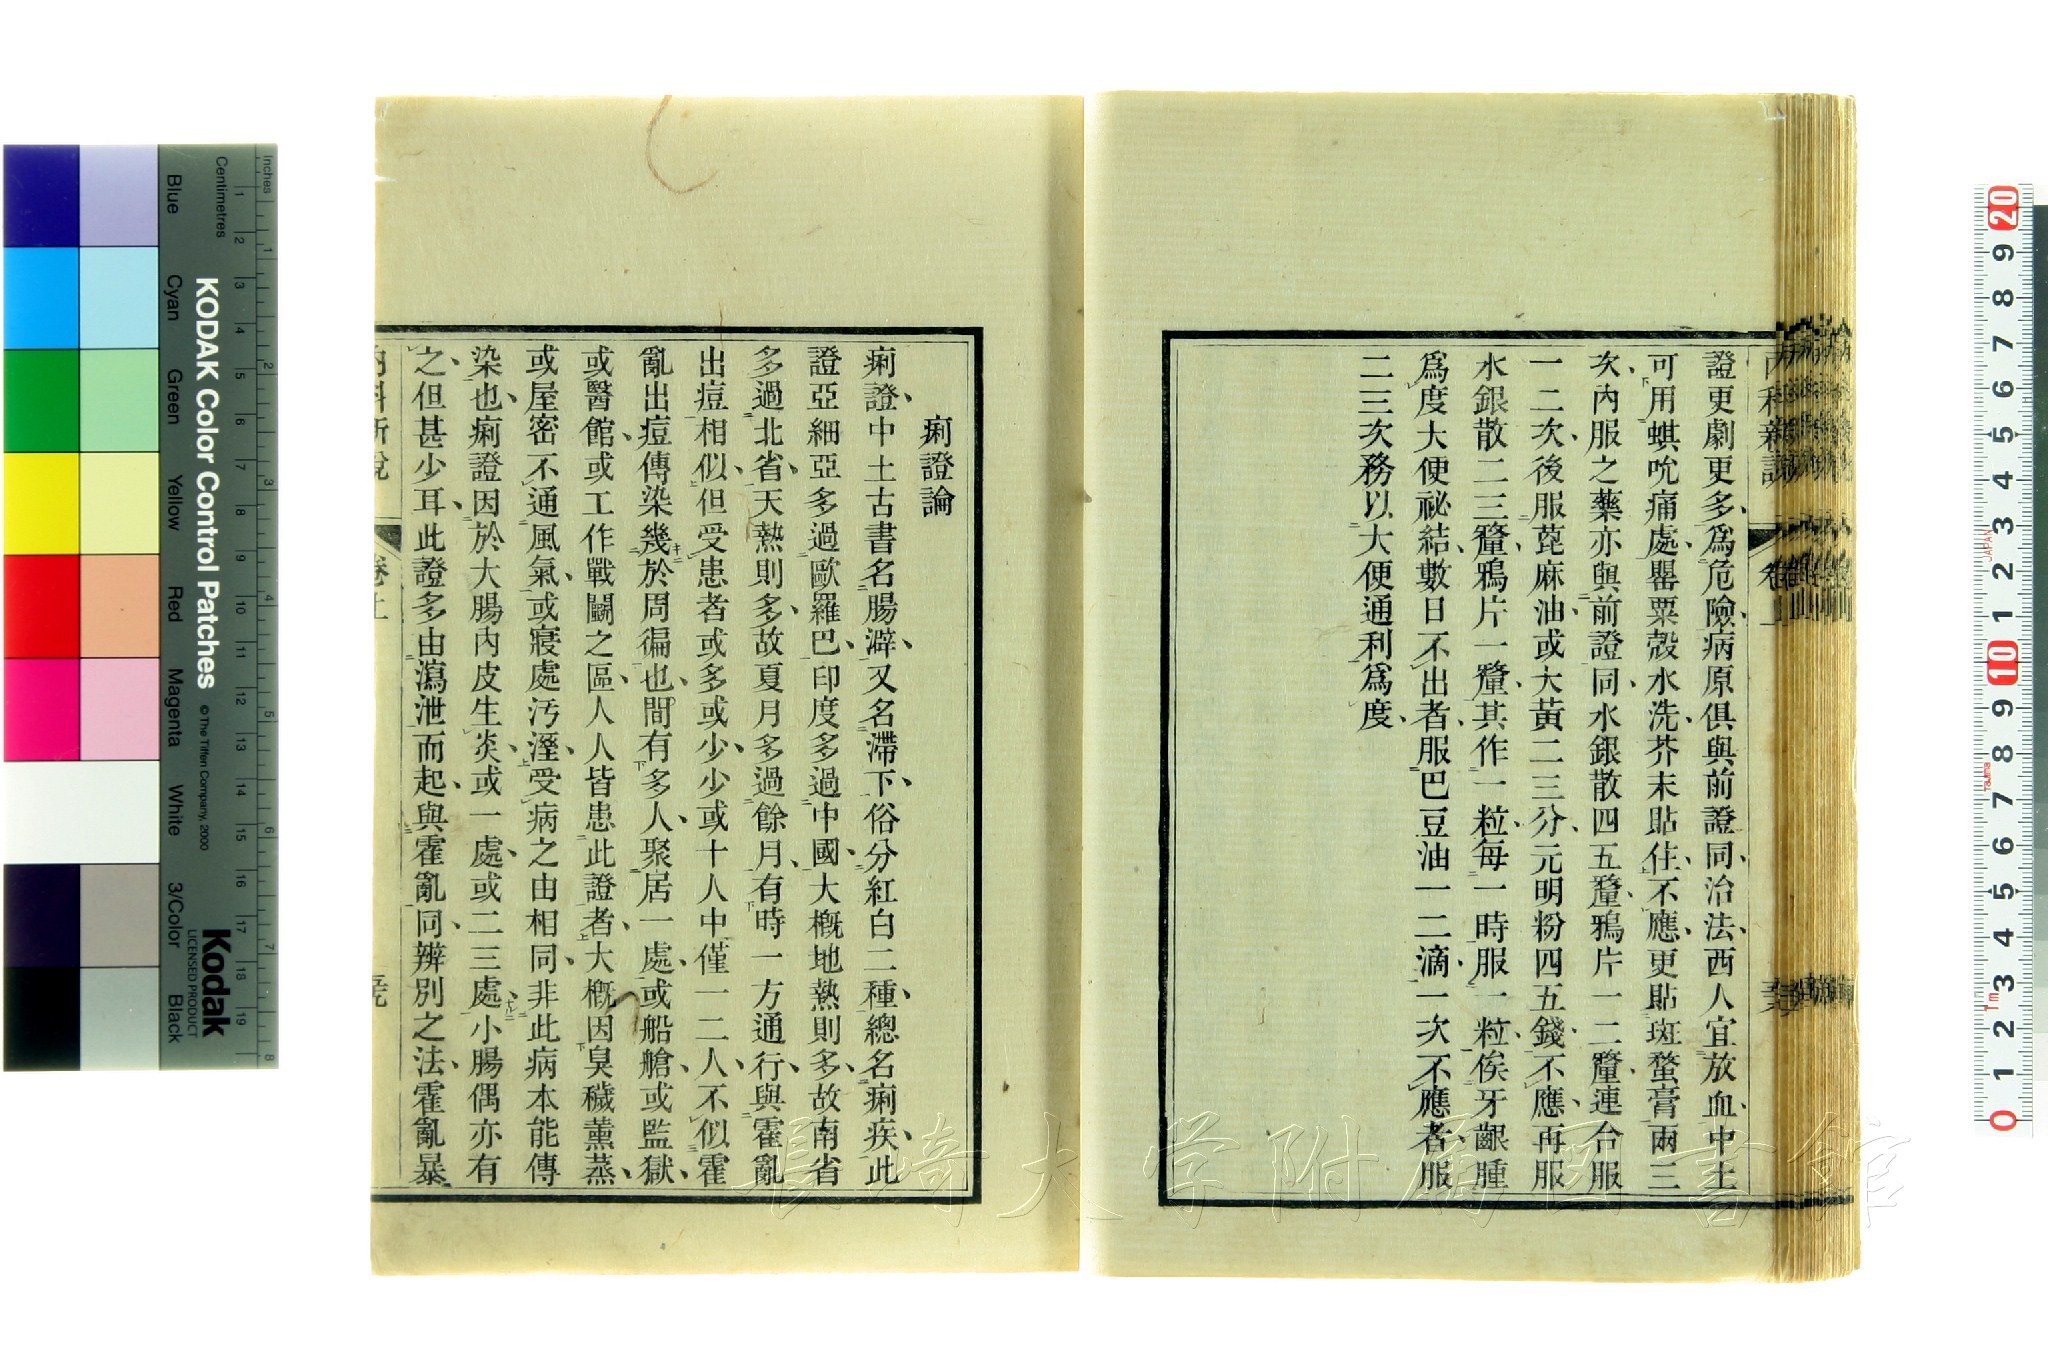 證更劇更多爲危險病原俱與前證同治法西人宜放血中土
可用蜞吮痛處罌粟殼水洗芥末貼住不應更貼斑蝥膏兩三
次內服之藥亦與前證同水銀散四五釐鴉片一二釐連合服
一二次後服蓖麻油或大黃二三分元明粉四五錢不應再服
水銀散二三釐鴉片一釐其作一粒每一時服一粒俟牙齦腫
爲度大便祕結數日不出者服巴豆油一二滴一次不應者服
二三次務以大便通利爲度
痢證論
痢證中土古書名腸澼又名滯下俗分紅白二種總名痢疾此
證亞細亞多過歐羅巴印度多過中國大槪地熱則多故南省
多過北省天熱則多故夏月多過餘月有時一方通行與霍亂
出痘相似但受患者或多或少少或十人中僅一二人不似霍
亂出痘傳染幾於周徧也間有多人聚居一處或船艙或監獄
或醫館或工作戰鬭之區人人皆患此證者大槪因臭穢薰蒸
或屋密不通風氣或寢處污溼受病之由相同非此病本能傳
染也痢證因於大腸內皮生炎或一處或二三處小腸偶亦有
之但甚少耳此證多由瀉泄而起與霍亂同辨別之法霍亂暴
內科新說
卷上
長崎大学附属図書館
KODAK Color Control Patches
© The Tiffen Company, 2000
Kodak
LICENSED PRODUCT
Inches
Centimetres
Blue
Cyan
Green
Yellow
Red
Magenta
White
3/Color
Black